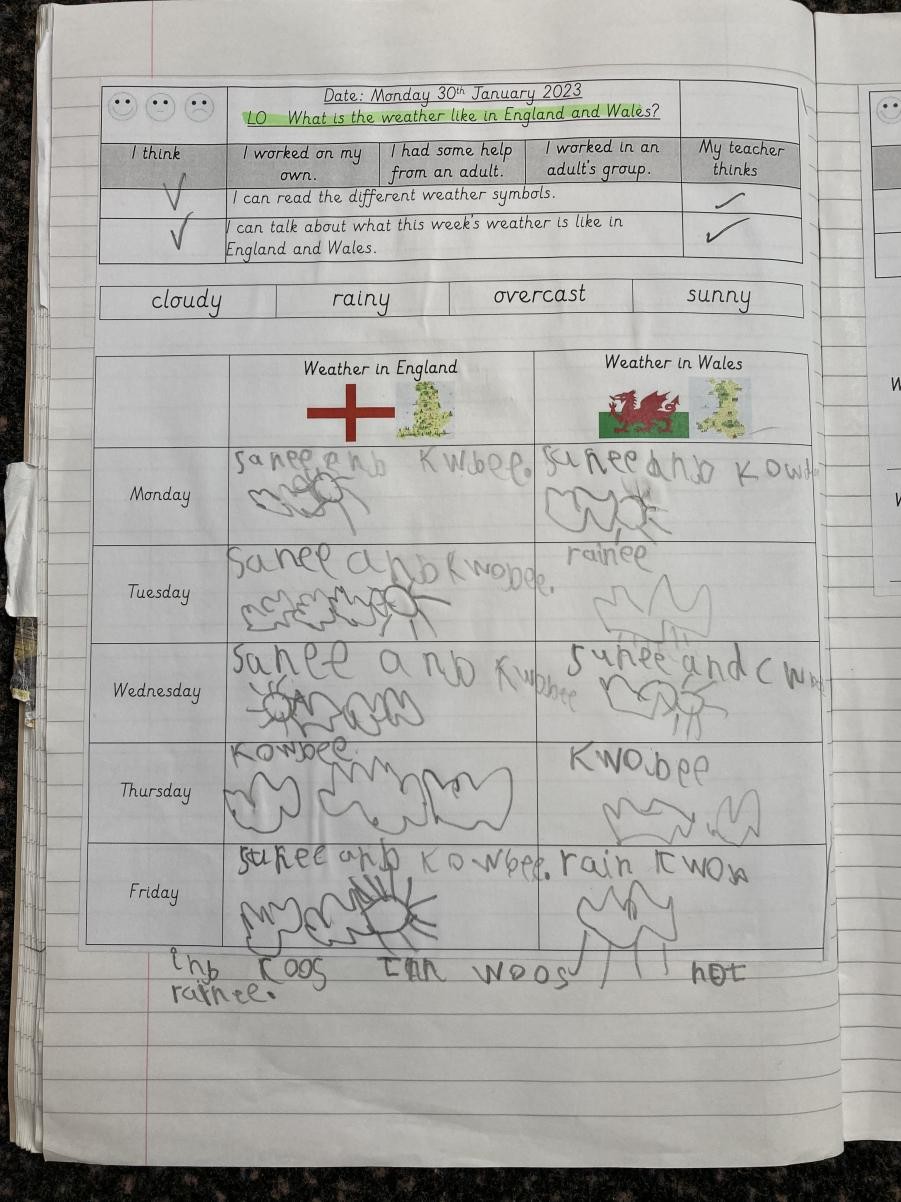 Date: Monday 30th January 2023
LO What is the weather like in England and Wales?
I think
I worked on my own.
I had some help from an adult.
I worked in an adult's group.
My teacher thinks
I can read the different weather symbols.
I can talk about what this week's weather is like in
England and Wales.
cloudy rainy overcast sunny
Weather in England Weather in Wales
Monday
sanee anb Kwbee. sunee anb
Tuesday
sanee anb Kwobee. rainee
Wednesday
sanee anb Kwobee sunee and
Thursday
Kowbee. Kwo.bee
Friday
sunee anb Kowbee. rain
inb not
rainee.